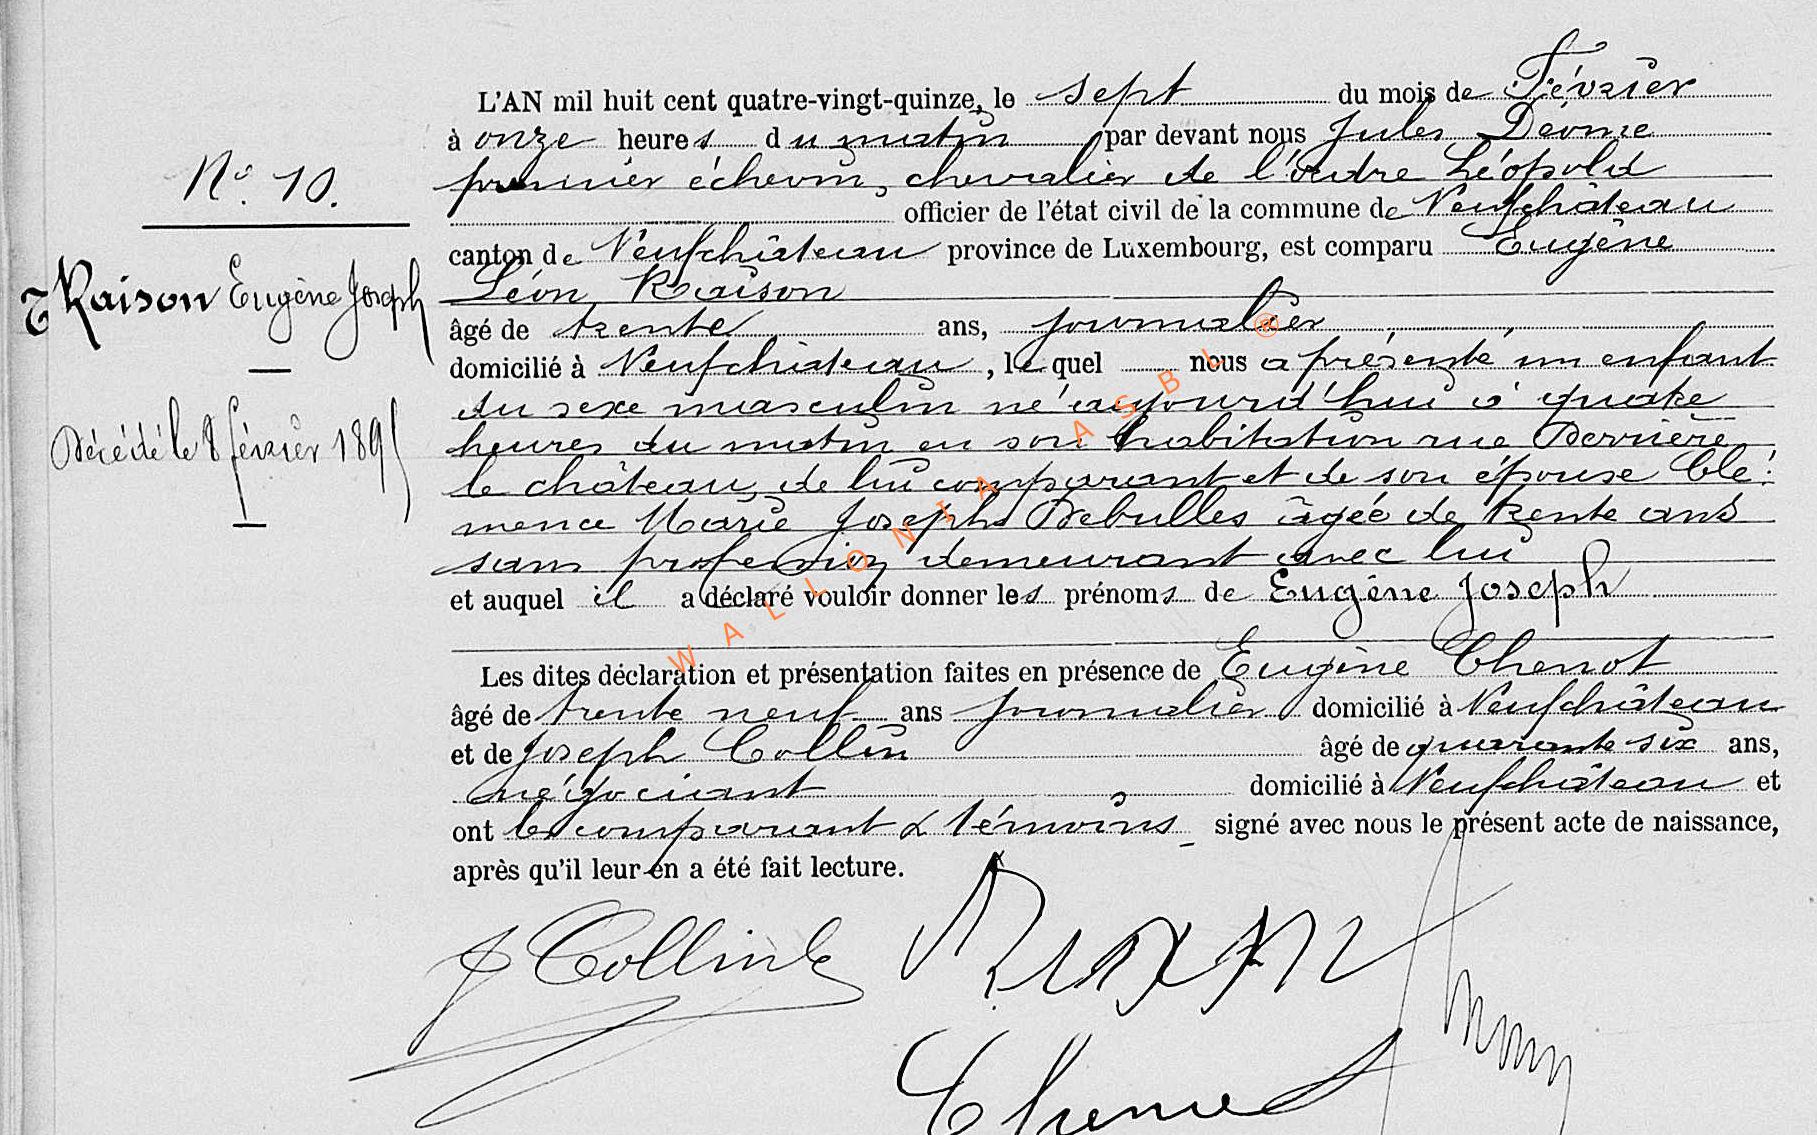 L'AN mil huit cent quatre-vingt-quinze, le sept du mois de Février
à onze heures du matin par devant nous Jules
premier échevin, chevalier de l'ordre Léopold
officier de l'état civil de la commune de Neufchâteau
canton de Neufchâteau province de Luxembourg, est comparu Eugène
Léon Raison
âgé de trente ans, journalier
domicilié à Neufchâteau, lequel nous a présenté un enfant
du sexe masculin né aujourd'hui à quatre
heures du matin en son habitation rue Derrière
le château, de lui comparant et de son épouse Clé-
mence Marie Joseph Debulles âgée de trente ans
sans profession demeurant avec lui
et auquel il a déclaré vouloir donner les prénoms de Eugène Joseph
Les dites déclaration et présentation faites en présence de Eugène Chenot
âgé de trente neuf ans journalier domicilié à Neufchâteau
et de Joseph Collin âgé de quarante six ans,
négociant domicilié à Neufchâteau et
ont les comparant & témoins signé avec nous le présent acte de naissance,
après qu'il leur en a été fait lecture.
N° 10.
Raison Eugène Joseph
Décédé le 8 février 1895
J Collin
Raison
Chenot
WALLONIA ASBL ®